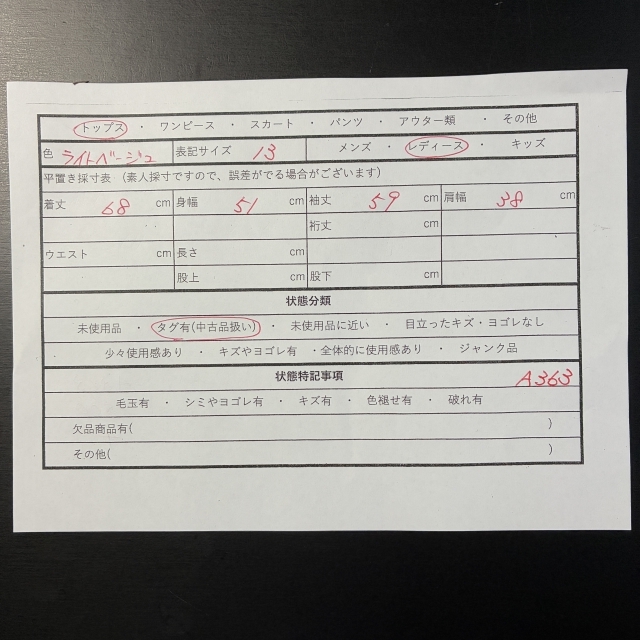 トップス ・ ワンピース ・ スカート ・ パンツ ・ アウター類 ・ その他
色 ライトベージュ 表記サイズ 13 メンズ ・ レディース ・ キッズ
平置き採寸表 (素人採寸ですので、誤差がでる場合がございます)
着丈 68 cm 身幅 51 cm 袖丈 59 cm 肩幅 38 cm
裄丈 cm
ウエスト cm 長さ cm
股上 cm 股下 cm
状態分類
未使用品 ・ タグ有(中古品扱い) ・ 未使用品に近い ・ 目立ったキズ・ヨゴレなし
少々使用感あり ・ キズやヨゴレ有 ・全体的に使用感あり ・ ジャンク品
状態特記事項 A363
毛玉有 ・ シミやヨゴレ有 ・ キズ有 ・ 色褪せ有 ・ 破れ有
欠品商品有( )
その他( )